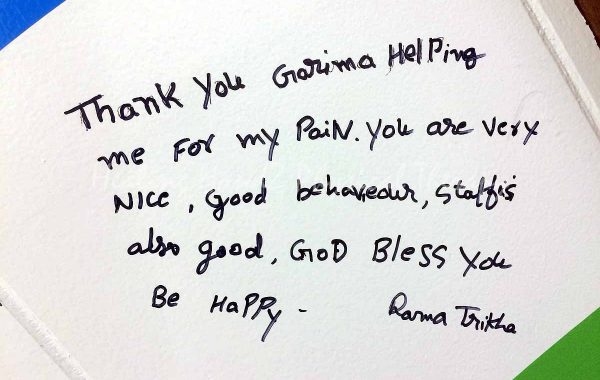 Thank You Garima Helping
me For my Pain. You are very
Nice, Good behaveour, staff is
also good, God Bless You
Be Happy -
Rama Trikha